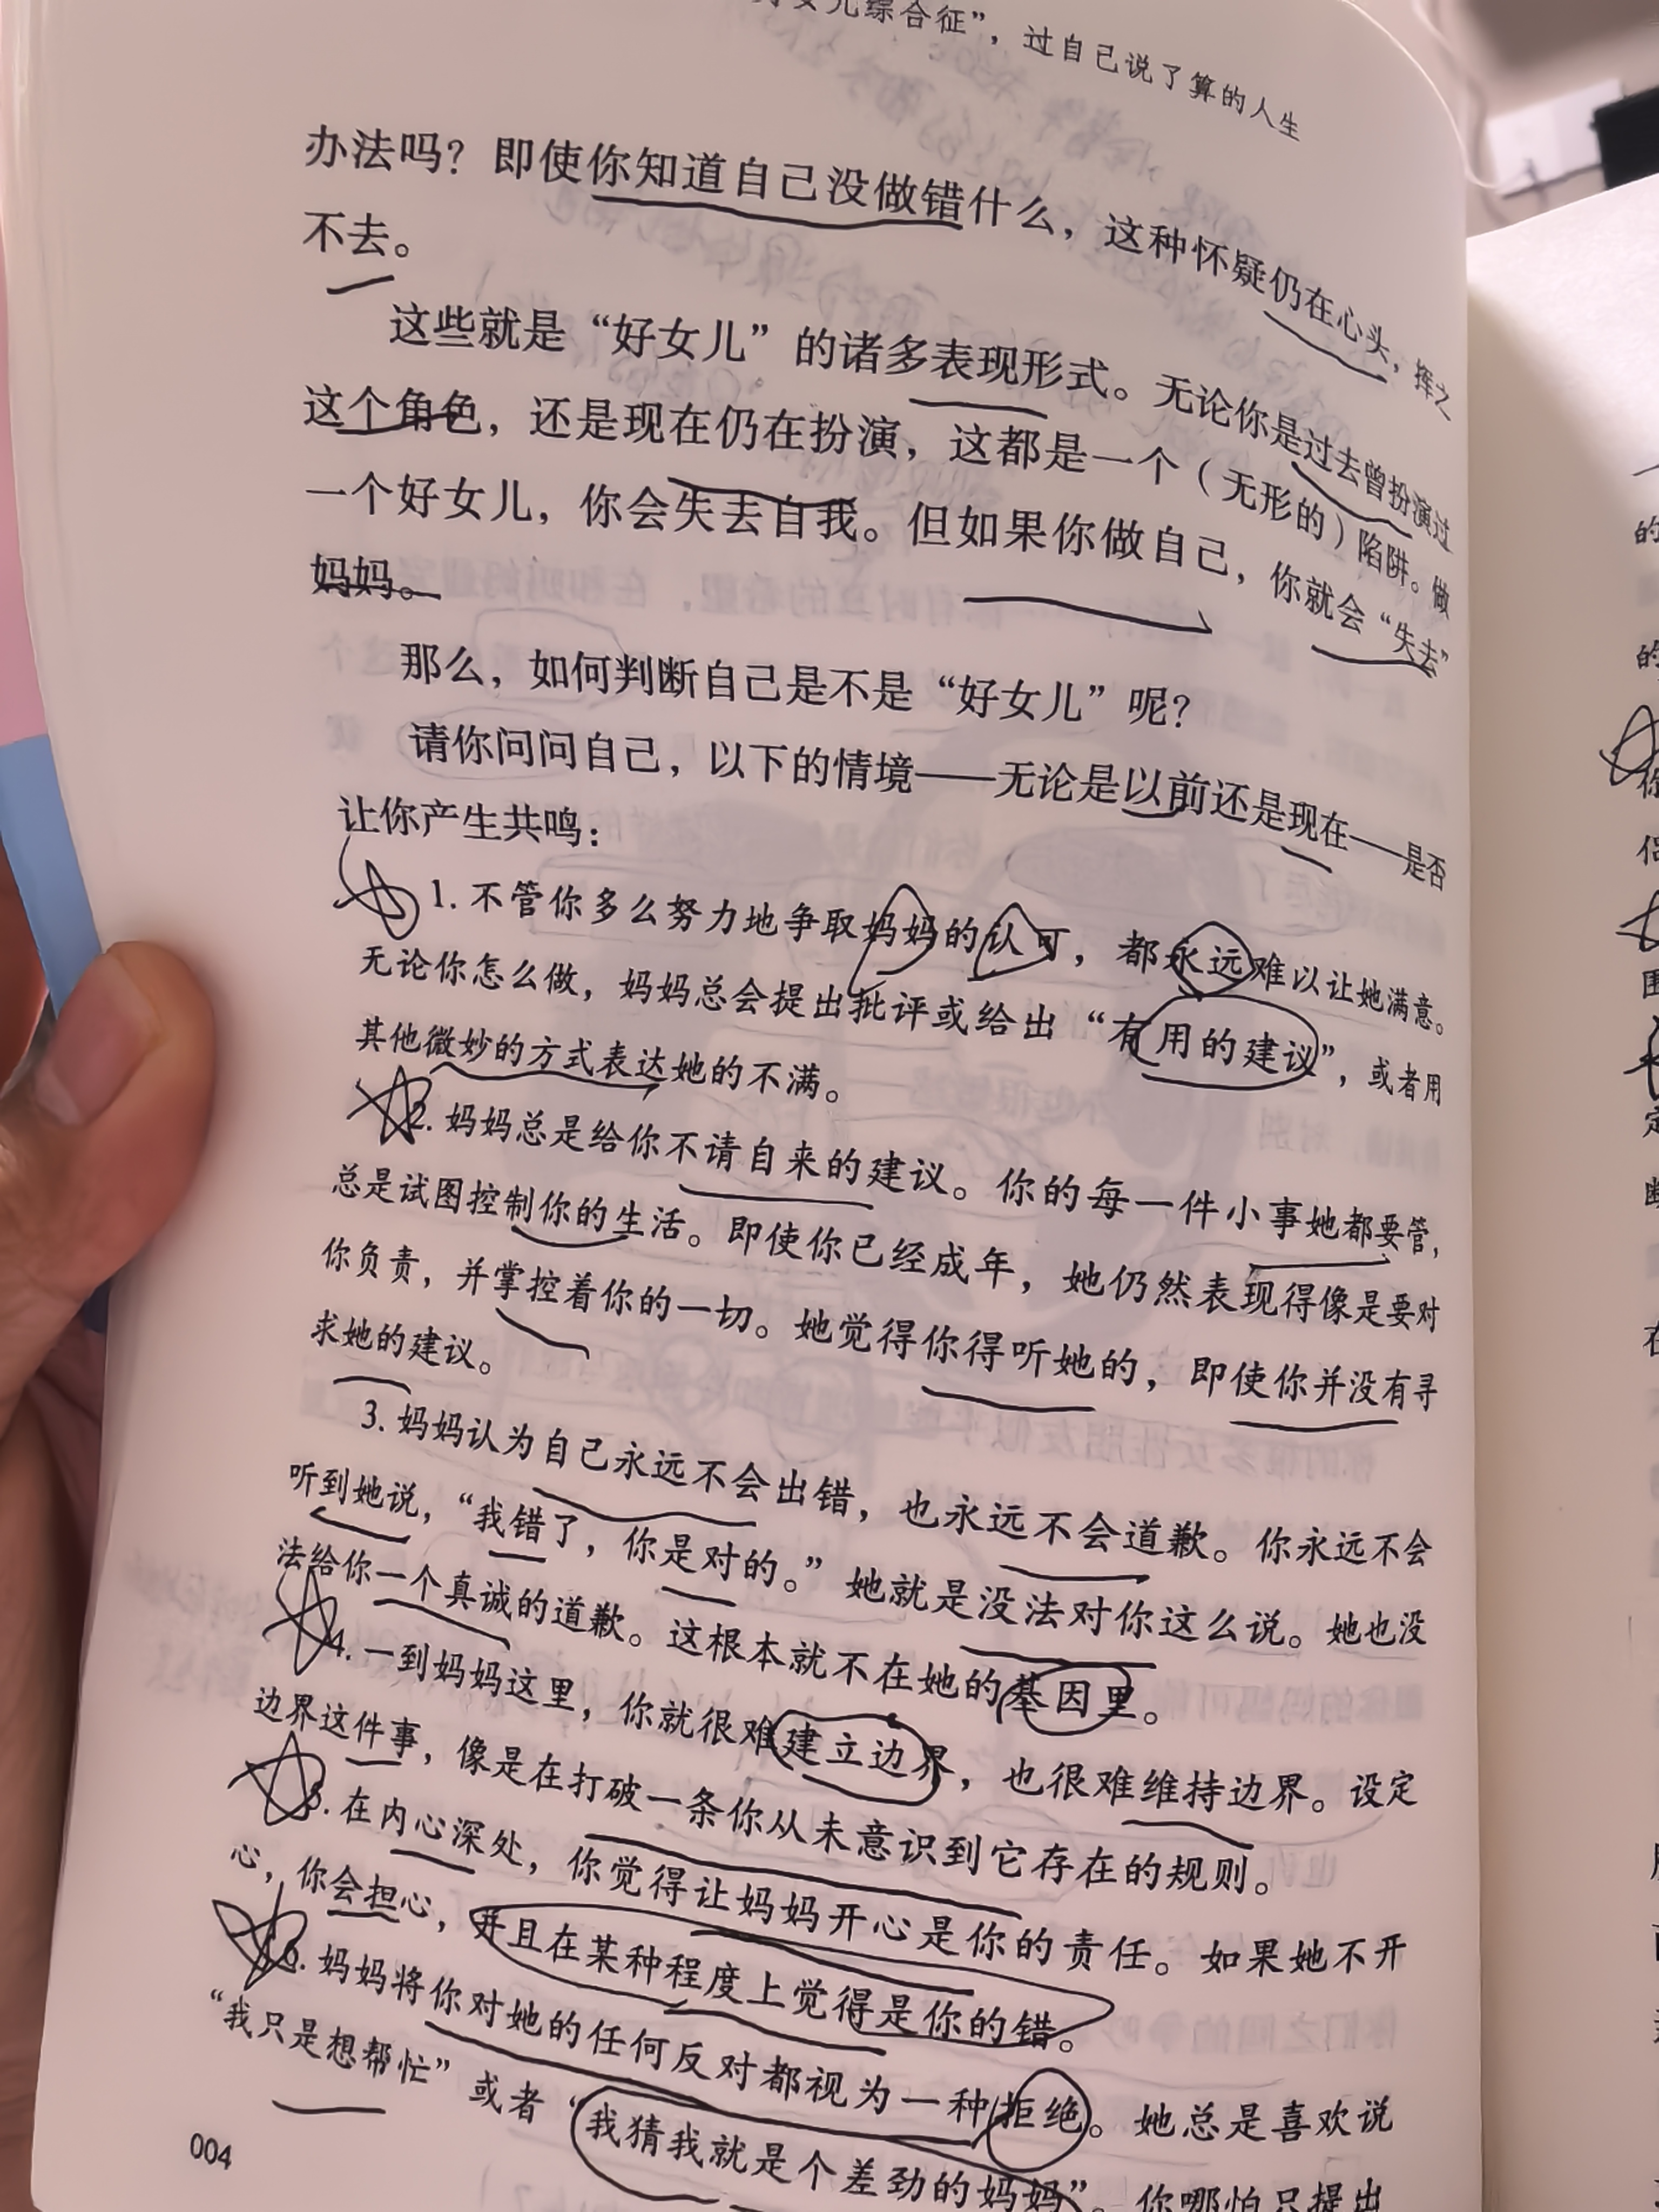 好女儿综合征”，过自己说了算的人生
办法吗？即使你知道自己没做错什么，这种怀疑仍在心头，挥之
不去。
这些就是“好女儿”的诸多表现形式。无论你是过去曾扮演过
这个角色，还是现在仍在扮演，这都是一个（无形的）陷阱。做
一个好女儿，你会失去自我。但如果你做自己，你就会“失去”
妈妈。
那么，如何判断自己是不是“好女儿”呢？
请你问问自己，以下的情境——无论是以前还是现在——是否
让你产生共鸣：
1. 不管你多么努力地争取妈妈的认可，都永远难以让她满意。
无论你怎么做，妈妈总会提出批评或给出“有用的建议”，或者用
其他微妙的方式表达她的不满。
2. 妈妈总是给你不请自来的建议。你的每一件小事她都要管，
总是试图控制你的生活。即使你已经成年，她仍然表现得像是要对
你负责，并掌控着你的一切。她觉得你得听她的，即使你并没有寻
求她的建议。
3. 妈妈认为自己永远不会出错，也永远不会道歉。你永远不会
听到她说，“我错了，你是对的。”她就是没法对你这么说。她也没
法给你一个真诚的道歉。这根本就不在她的基因里。
4. 一到妈妈这里，你就很难建立边界，也很难维持边界。设定
边界这件事，像是在打破一条你从未意识到它存在的规则。
5. 在内心深处，你觉得让妈妈开心是你的责任。如果她不开
心，你会担心，并且在某种程度上觉得是你的错。
6. 妈妈将你对她的任何反对都视为一种拒绝。她总是喜欢说
“我只是想帮忙”或者“我猜我就是个差劲的妈妈”。你哪怕只提出
004